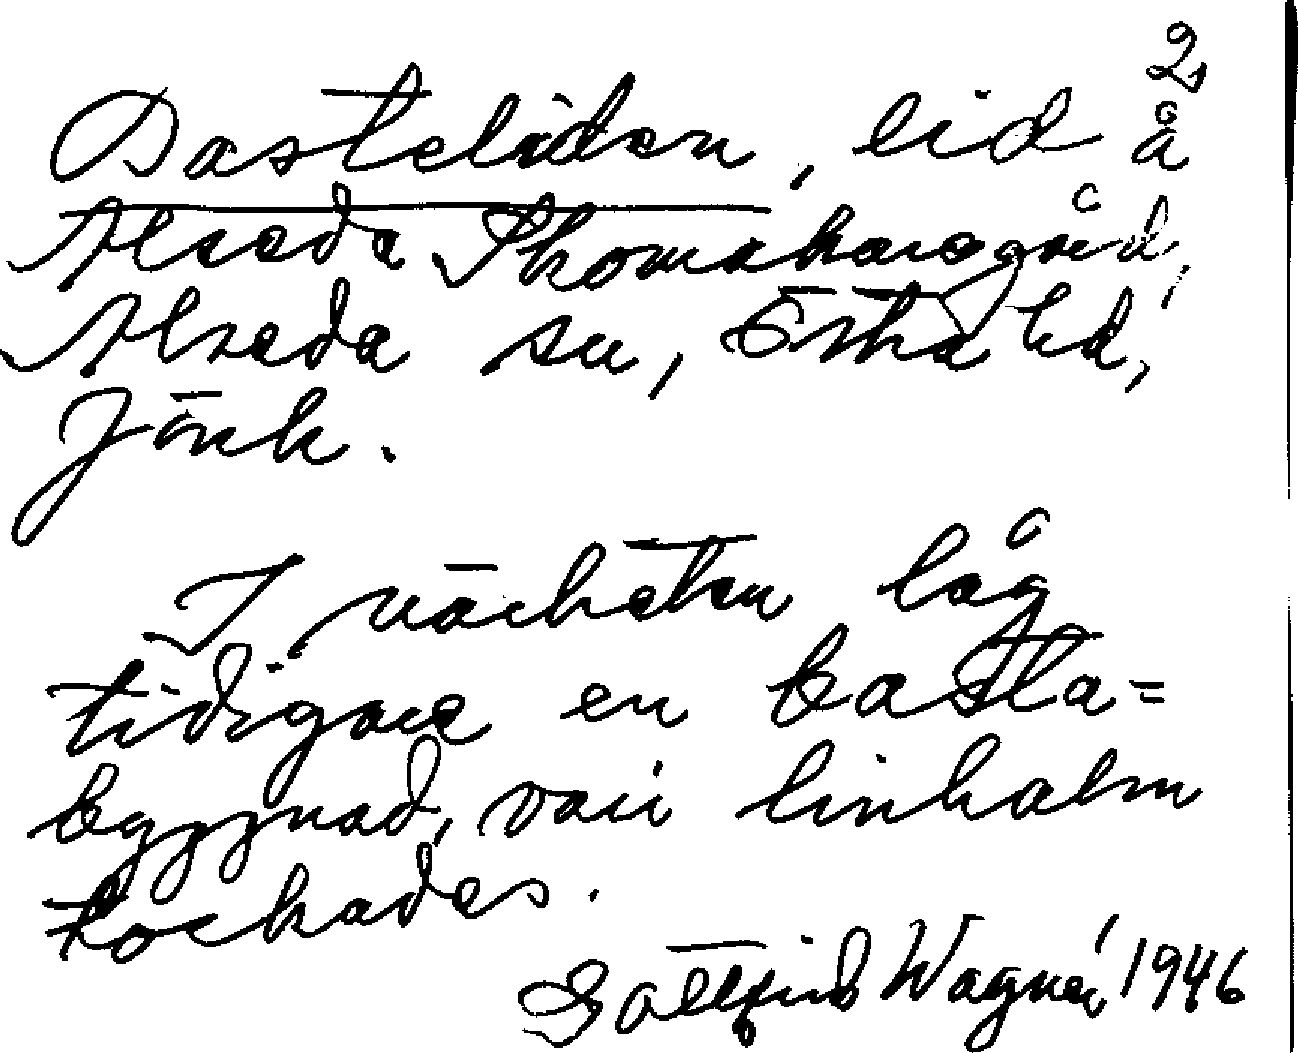 2
Basteliden, lid å
Alseda Thomaskarsgård,
Alseda sn, Östra hd,
Jönk.
I närheten låg
tidigare en basta=
byggnad, vari linhalm
tockades.
Gottfrid Wagnér, 1946